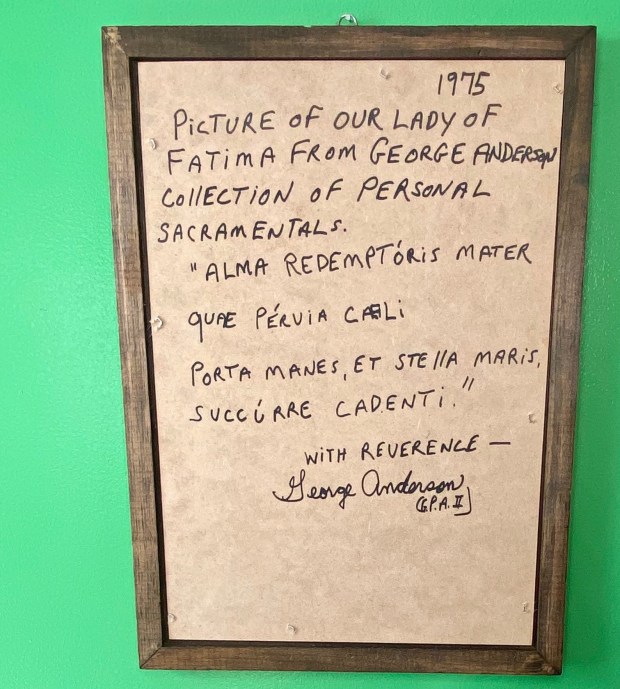 1975
PICTURE OF OUR LADY OF
FATIMA FROM GEORGE ANDERSON
COLLECTION OF PERSONAL
SACRAMENTALS.
"ALMA REDEMPTÓRIS MATER
QUAE PÉRVIA CAELI
PORTA MANES, ET STELLA MARIS,
SUCCÚRRE CADENTI."
WITH REVERENCE —
George Anderson
(G.P.A. II]